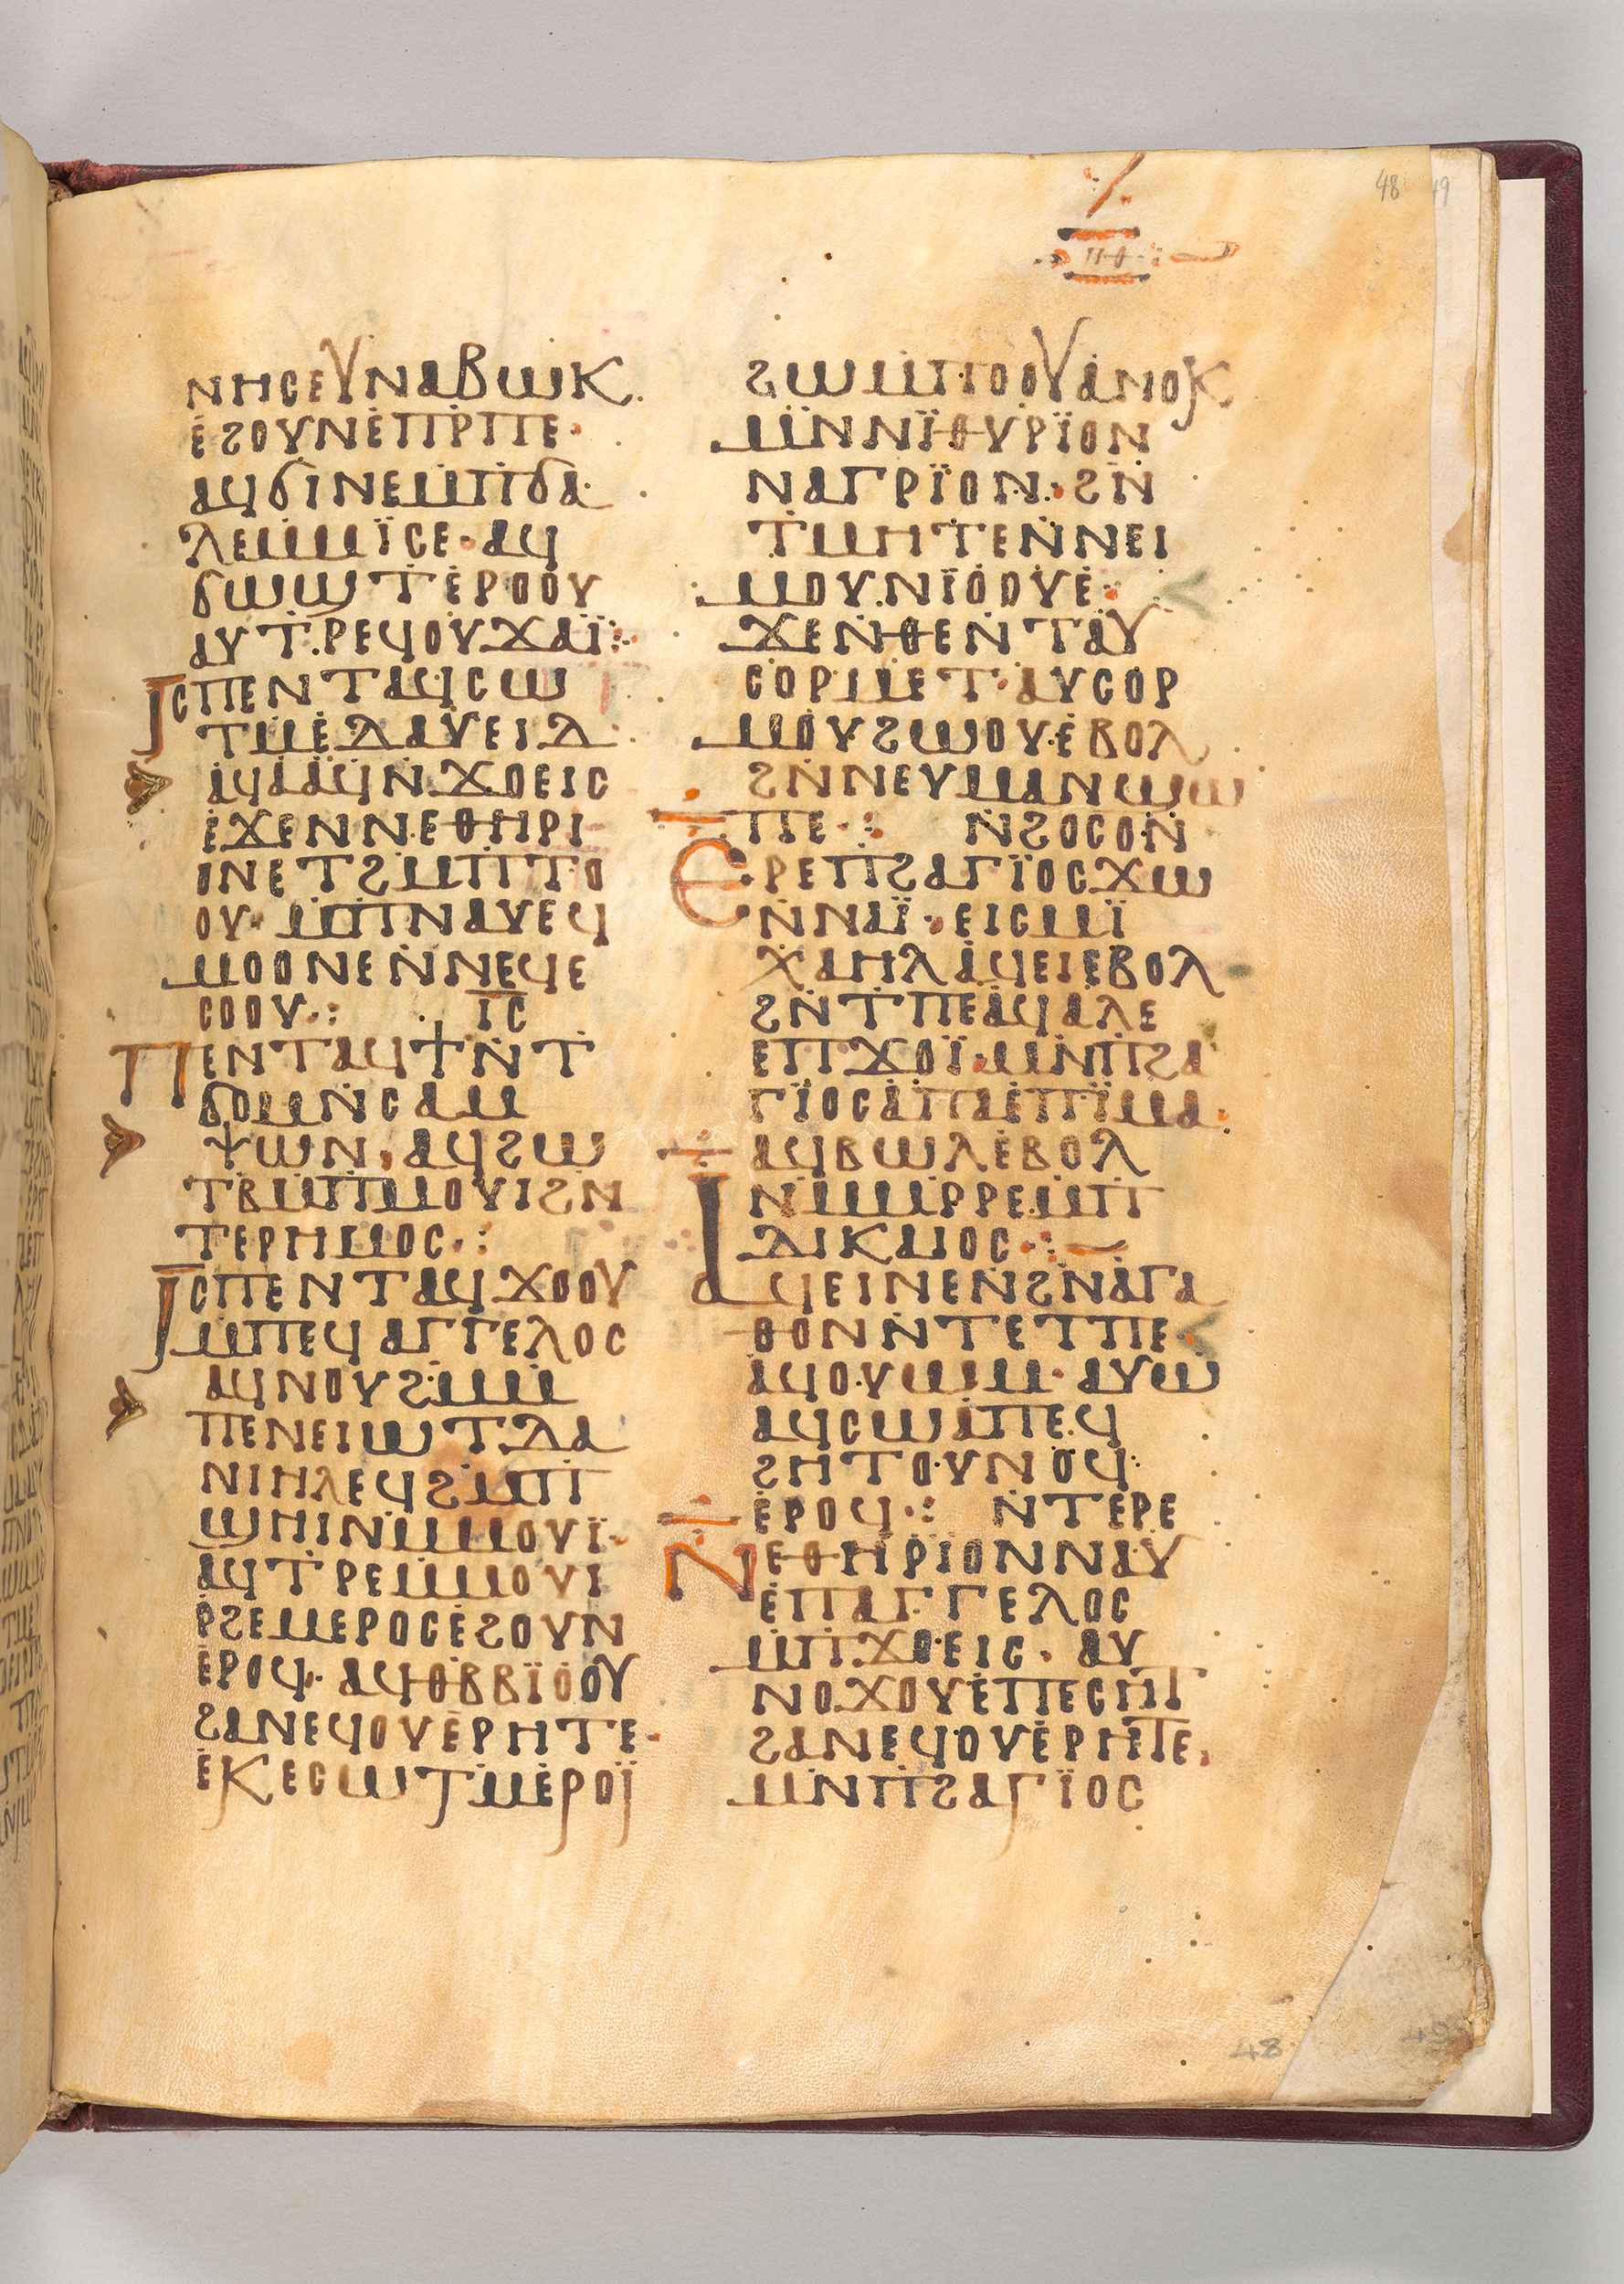 48 49
ⲡⲑ
ⲛⲏⲥⲉⲩⲛⲁⲃⲱⲕ·
ⲉϩⲟⲩⲛⲉⲡⲣⲡⲉ·
ⲁϥϭⲓⲛⲉⲙⲡϭⲁ
ⲗⲉⲙⲙⲓ̈ⲥⲉ·ⲁϥ
ϭⲱϣⲧⲉⲣⲟⲟⲩ
ⲁⲩⲧⲣⲉϥⲟⲩϫⲁⲓ̈⁘
ⲓ̅ⲥ̅ⲡⲉⲛⲧⲁϥⲥⲱ
ⲧⲙⲉⲇⲁⲩⲉⲓⲇ
ⲁϥⲁⲁϥⲛϫⲟⲉⲓⲥ
ⲉϫⲉⲛⲛⲉⲑⲏⲣⲓ
ⲟⲛⲉⲧϩⲙⲡⲧⲟ
ⲟⲩ·ⲙⲡⲛⲁⲩⲉϥ
ⲙⲟⲟⲛⲉⲛⲛⲉϥⲉ
ⲥⲟⲟⲩ⁖ ⲓ̅ⲥ̅
ⲡⲉⲛⲧⲁϥϯⲛⲧ
ϭⲟⲙⲛⲥⲁⲙ
ⲯⲱⲛ,ⲁϥϩⲱ
ⲧⲃⲙⲡⲙⲟⲩⲓϩⲛ
ⲧⲉⲣⲏⲙⲟⲥ⁖
ⲓ̅ⲥ̅ⲡⲉⲛⲧⲁϥϫⲟⲟⲩ
ⲙⲡⲉϥⲁⲅⲅⲉⲗⲟⲥ
ⲁϥⲛⲟⲩϩⲙⲙ
ⲡⲉⲛⲉⲓⲱⲧⲇⲁ
ⲛⲓⲏⲗⲉϥϩⲙⲡ
ϣⲏⲓⲛⲙⲙⲟⲩⲓ̈·
ⲁϥⲧⲣⲉⲙⲙⲟⲩⲓ
ⲣϩⲉⲙⲉⲣⲟⲥⲉϩⲟⲩⲛ
ⲉⲣⲟϥ·ⲁϥⲑⲃⲃⲓ̈ⲟⲟⲩ
ϩⲁⲛⲉϥⲟⲩⲉⲣⲏⲧⲉ·
ⲉⲕⲉⲥⲱⲧⲙⲉⲣⲟⲓ̈
ϩⲱⲙⲡⲟⲟⲩⲁⲛⲟⲕ
ⲙⲛⲛⲓ̈ⲑⲩⲣⲓ̈ⲟⲛ
ⲛⲁⲅⲣⲓ̈ⲟⲛ·ϩⲛ
ⲧⲙⲏⲧⲉⲛⲛⲉⲓ
ⲙⲟⲩⲛⲓ̈ⲟⲟⲩⲉ·
ϫⲉⲛⲑⲉⲛⲧⲁⲩ
ⲥⲟⲣⲙⲉⲧⲁⲩⲥⲟⲣ
ⲙⲟⲩϩⲱⲟⲩⲉⲃⲟⲗ
ϩⲛⲛⲉⲩⲙⲁⲛϣⲱ
ⲡⲉ⁖ ⲛϩⲟⲥⲟⲛ
ⲉⲣⲉⲡϩⲁⲅⲓ̈ⲟⲥϫⲱ
ⲛⲛⲁⲓ̈·ⲉⲓⲥⲙⲓ̈
ⲭⲁⲏⲗⲁϥⲉⲓⲉⲃⲟⲗ
ϩⲛⲧⲡⲉⲁϥⲁⲗⲉ
ⲉⲡϫⲟⲓ̈·ⲙⲛⲡϩⲁ
ⲅⲓ̈ⲟⲥⲁⲡⲁⲉⲡⲓ̈ⲙⲁ·
ⲁϥⲃⲱⲗⲉⲃⲟⲗ
ⲛⲙⲙⲣⲣⲉⲙⲡ
ⲇⲓⲕⲁⲓⲟⲥ⁖
ⲁϥⲉⲓⲛⲉⲛϩⲛⲁⲅⲁ
ⲑⲟⲛⲛⲧⲉⲧⲡⲉ·
ⲁϥⲟⲩⲱⲙ·ⲁⲩⲱ
ⲁϥⲥⲱⲁⲡⲉϥ
ϩⲏⲧⲟⲩⲛⲟϥ
ⲉⲣⲟϥ⁖ ⲛⲧⲉⲣⲉ
ⲛⲉⲑⲏⲣⲓ̈ⲟⲛⲛⲁⲩ
ⲉⲡⲁⲅⲅⲉⲗⲟⲥ
ⲙⲡϫⲟⲉⲓⲥ·ⲁⲩ
ⲛⲟϫⲟⲩⲉⲡⲉⲥⲏⲧ
ϩⲁⲛⲉϥⲟⲩⲉⲣⲏⲧⲉ,
ⲙⲛⲡϩⲁⲅⲓ̈ⲟⲥ
48 49